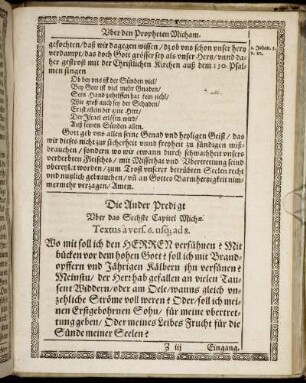 Uber den Propheten Micham.
gefochten/ daß wir dagegen wissen/ dz ob uns schon unser hertz
verdampt/ das doch Gott grösser sey als unser Hertz/ unnd da-
her getrost mit der Christlichen Kirchen auß dem 130. Psal-
men singen
Ob bey uns ist der Sünden viel/
Bey Gott ist viel mehr Gnaden/
Sein Hand zuhelffen hat kein ziehl/
Wie groß auch sey der Schade/
Er ist allein der gute Hirt/
Der Israel erlösen wird/
Auß seinen Sünden allen.
Gott geb uns allen seine Genad und heyligen Geist/ das
wir dieses nicht zur sicherheit unnd freyheit zu sündigen miß-
brauchen/ sondern wo wir etwann durch schwachheit unsers
verderbten Fleisches/ mit Missethat und Ubertrettung seind
ubereylet worden/ zum Trost unserer betrübten Seelen recht
und nutzlich gebrauchen/ uñ an Gottes Barmhertzigkeit nim-
mermehr verzagen/ Amen.
1. Johan. 3.
v. 20.
Die Ander Predigt
Uber das Sechste Capitel Michæ
Textus à vers. 6. usq; ad 8.
Wo mit soll ich den HERREN versühnen? Mit
bücken vor dem hohen Gott? soll ich mit Brand-
opffern und Jährigen Kälbern ihn versünen?
Meinstu/ der Herr hab gefallen an vielen Tau-
sent Widdern/ oder am Oele/ wanns gleich un-
zehliche Ströme voll weren? Oder/ soll ich mei-
nen Erstgebohrnen Sohn/ für meine ubertre-
tung geben/ Oder meines Leibes Frucht für die
Sünde meiner Seelen?
Z iij
Eingang.